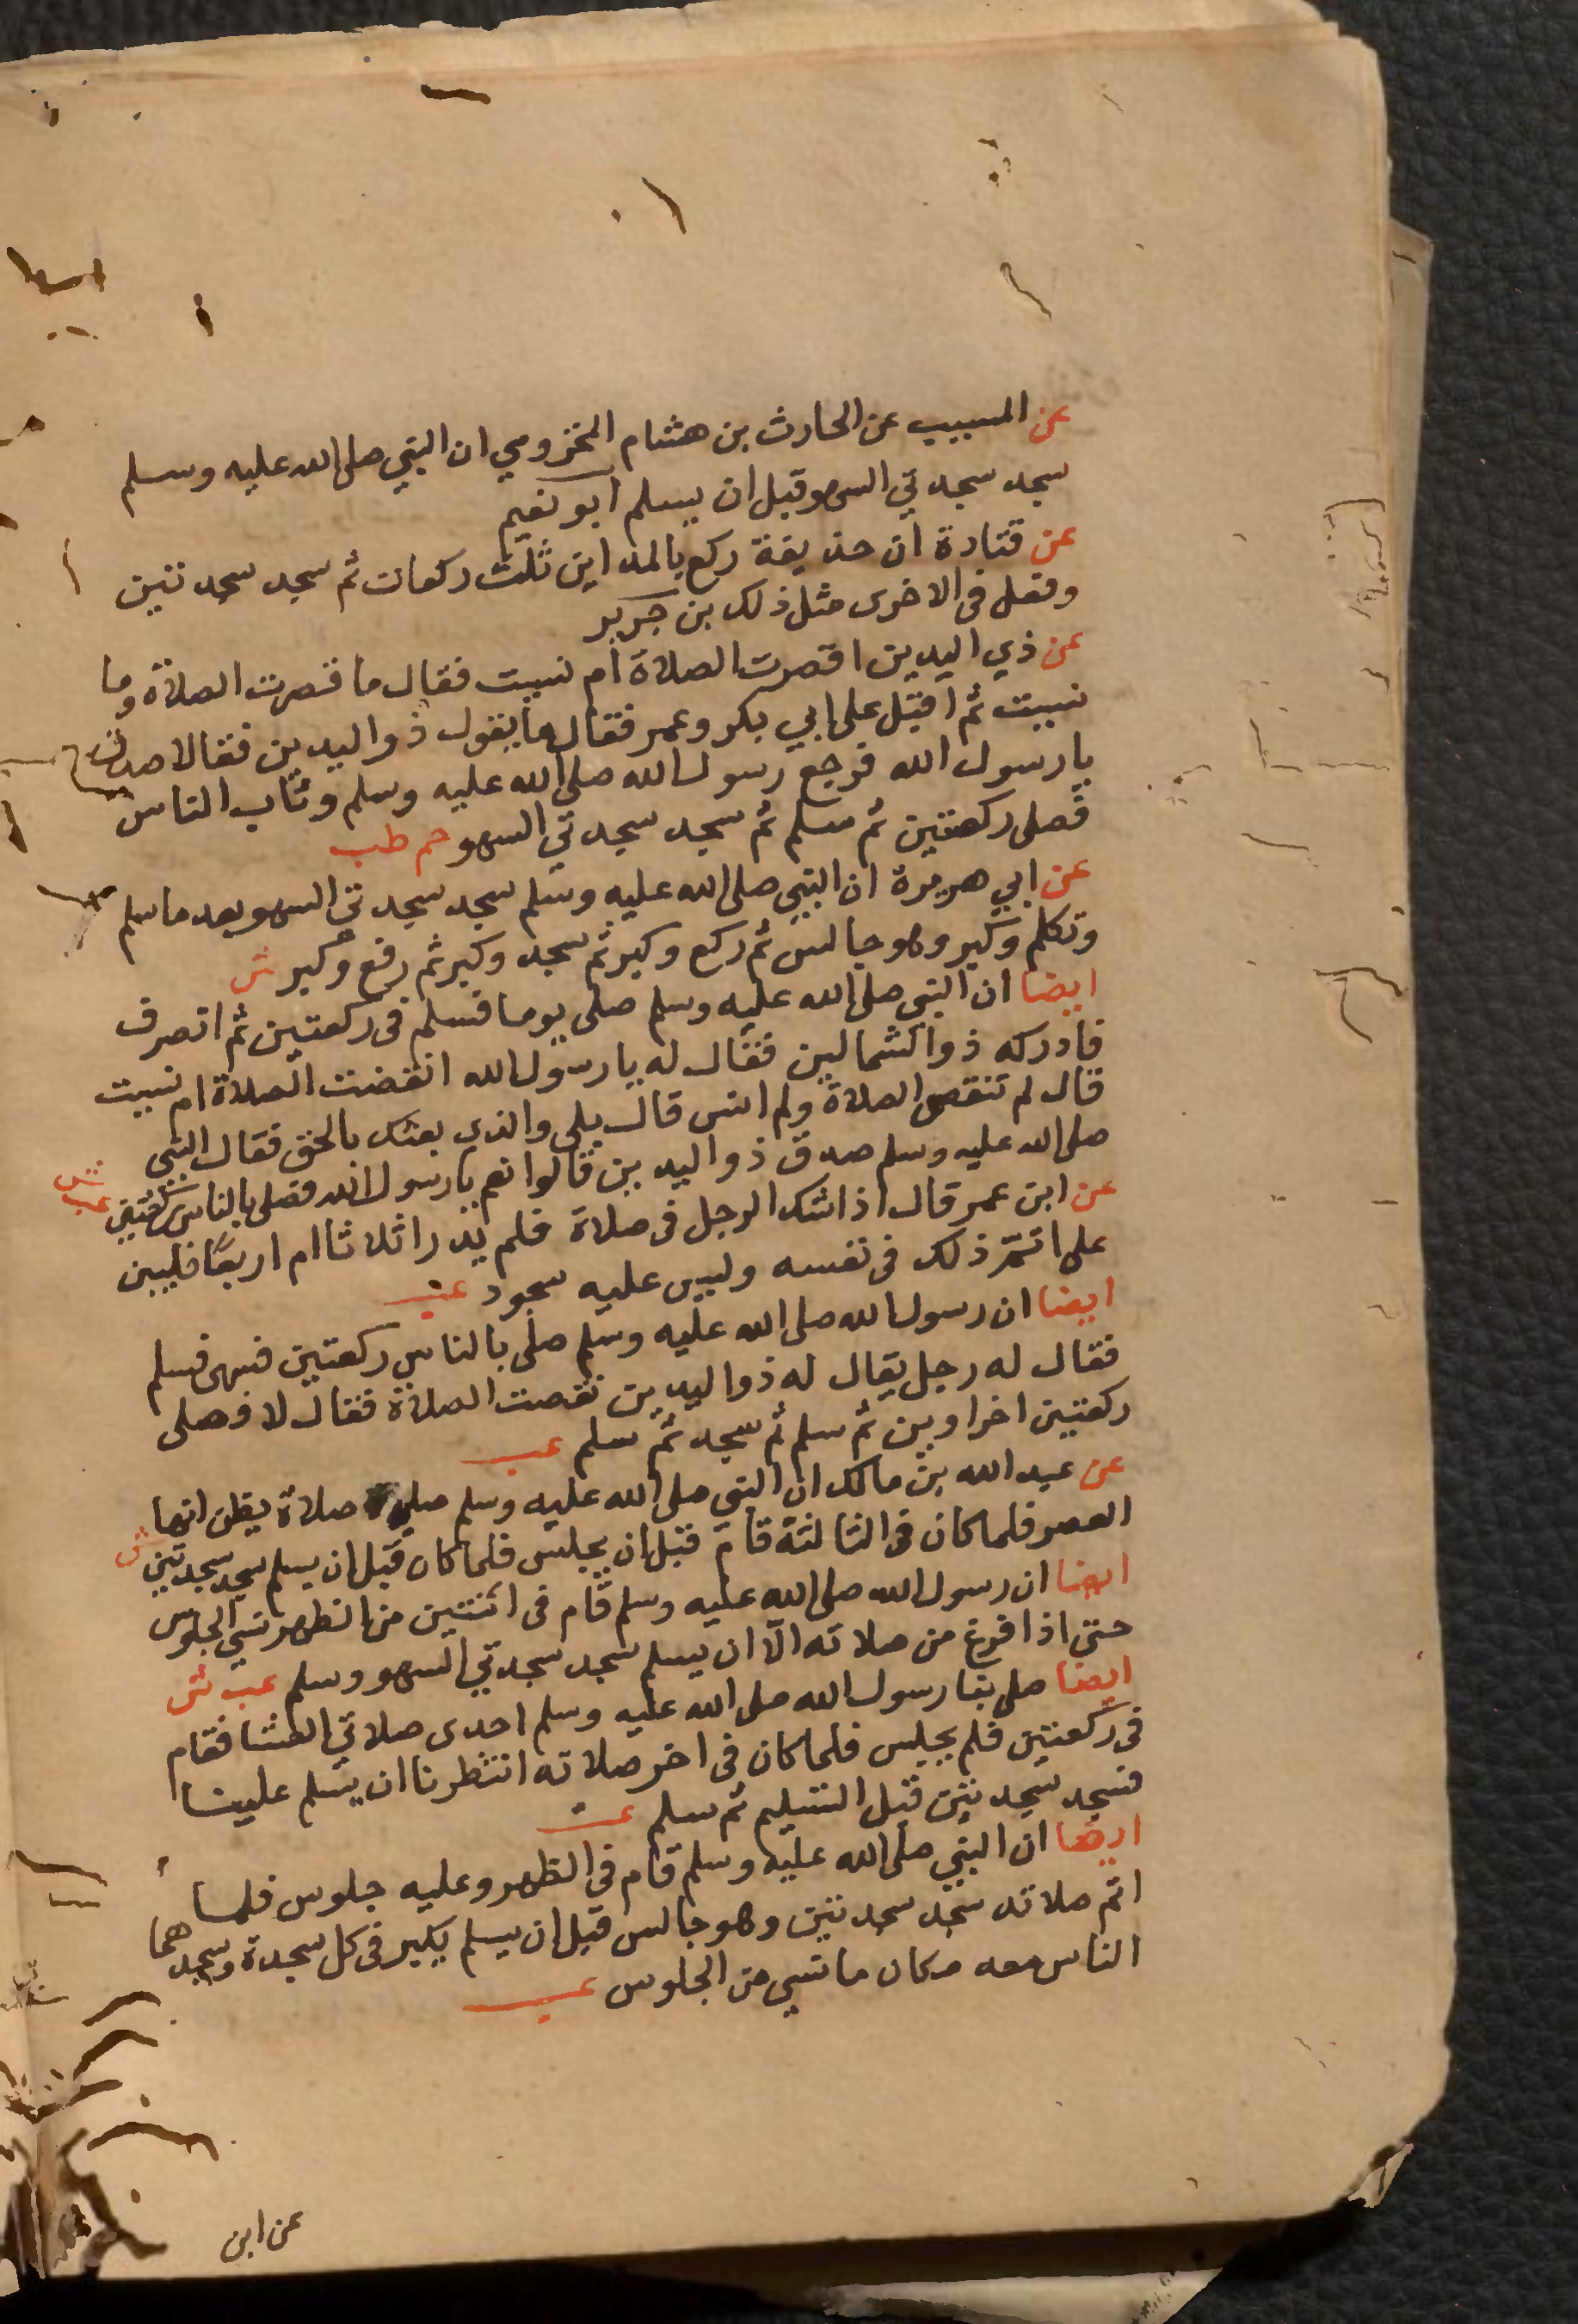 عن المسيب عن الحارث بن هشام المخزومي ان النبي صلى الله عليه وسلم
سجد سجدتي السهو قبل ان يسلم ابو نعيم
عن قتادة ان حذيفة ركع بالمداين ثلث ركعات ثم سجد سجدتين
وفعل في الاخرى مثل ذلك بن جرير
عن ذي اليدين اقصرت الصلاة ام نسيت فقال ما قصرت الصلاة وما
نسيت ثم اقبل على ابي بكر وعمر فقال ما يقول ذو اليدين فقالا صدق
يا رسول الله فرجع رسول الله صلى الله عليه وسلم وثاب الناس
فصلى ركعتين ثم سلم ثم سجد سجدتي السهو حم طب
عن ابي هريرة ان النبي صلى الله عليه وسلم سجد سجدتي السهو بعد ما سلم
وتكلم وكبر وهو جالس ثم ركع وكبر ثم سجد وكبر ثم رفع وكبر ش
ايضا ان النبي صلى الله عليه وسلم صلى يوما فسلم في ركعتين ثم انصرف
فادركه ذو الشمالين فقال له يا رسول الله انقضت الصلاة ام نسيت
قال لم تنقص الصلاة ولم انس قال بلى والذي بعثك بالحق فقال النبي
صلى الله عليه وسلم صدق ذو اليدين قالوا نعم يا رسول الله فصلى بالناس ركعتين عب ش
عن ابن عمر قال اذا شك الرجل في صلاة فلم يدر اثلاثا ام اربعا فليبن
على اتم ذلك في نفسه وليس عليه سجود عب
ايضا ان رسول الله صلى الله عليه وسلم صلى بالناس ركعتين فسهى فسلم
فقال له رجل يقال له ذو اليدين نقصت الصلاة فقال لا فصلى
ركعتين اخراوين ثم سلم ثم سجد ثم سلم عب
عن عبد الله بن مالك ان النبي صلى الله عليه وسلم صلى صلاة يظن انها
العصر فلما كان في الثالثة قام قبل ان يجلس فلما كان قبل ان يسلم سجد سجدتين ش
ايضا ان رسول الله صلى الله عليه وسلم قام في اثنتين من الظهر نسي الجلوس
حتى اذا فرغ من صلاته الا ان يسلم سجد سجدتي السهو وسلم عب ش
ايضا صلى بنا رسول الله صلى الله عليه وسلم احدى صلاتي العشا فقام
في ركعتين فلم يجلس فلما كان في اخر صلاته انتظرنا ان يسلم علينا
فسجد سجدتين قبل التسليم ثم سلم عب
ايضا ان النبي صلى الله عليه وسلم قام في الظهر وعليه جلوس فلما
اتم صلاته سجد سجدتين وهو جالس قبل ان يسلم يكبر في كل سجدة وسجدهما
الناس معه مكان ما نسي من الجلوس عب
عن ابن